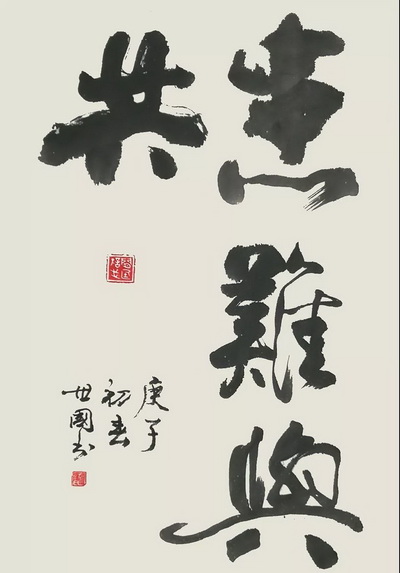 患難與
共
庚子
初春
世國书